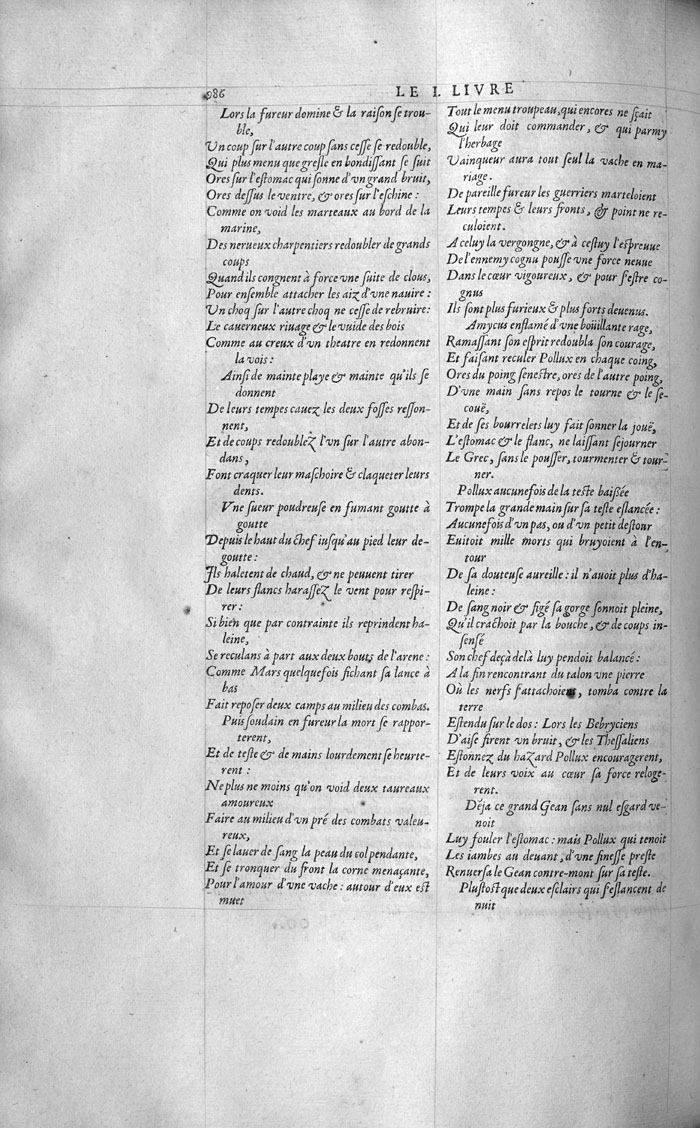 986
LE I. LIVRE
Lors la fureur domine & la raiſon ſe trou-
ble,
Vn coup ſur l'autre coup sans ceſſe ſe redouble,
Qui plus menu que greſle en bondiſſant ſe ſuit
Ores ſur l'eſtomac qui ſonne d'vn grand bruit,
Ores deſſus le ventre, & ores ſur l'eſchine:
Comme on void les marteaux au bord de la
marine,
Des nerueux charpentiers redoubler de grands
coups
Quand ils congnent à force vne ſuite de clous,
Pour enſemble attacher les aiz d'vne nauire:
Vn choq ſur l'autre choq ne ceſſe de rebruire:
Le cauerneux riuage & le vuide des bois
Comme au creux d'vn theatre en redonnent
la vois:
Ainſi de mainte playe & mainte qu'ils ſe
donnent
De leurs tempes cauez les deux foſſes reſſon-
nent,
Et de coups redoublez l'vn ſur l'autre abon-
dans,
Font craquer leur maſchoire & claqueter leurs
dents.
Vne ſueur poudreuſe en fumant goutte à
goutte
Depuis le haut du chef iuſqu'au pied leur de-
goutte:
Ils haletent de chaud, & ne peuuent tirer
De leurs flancs haraſſez le vent pour reſpi-
rer:
Si bien que par contrainte ils reprindent ha-
leine,
Se reculans à part aux deux bouts de l'arene:
Comme Mars quelquefois fichant ſa lance à
bas
Fait repoſer deux camps au milieu des combas.
Puis ſoudain en fureur la mort ſe rappor-
terent,
Et de teſte & de mains lourdement ſe heurte-
rent:
Ne plus ne moins qu'on void deux taureaux
amoureux
Faire au milieu d'vn pré des combats valeu-
reux,
Et ſe lauer de ſang la peau du col pendante,
Et ſe tronquer du front la corne menaçante,
Pour l'amour d'vne vache: autour d'eux eſt
muet
Tout le menu troupeau, qui encores ne ſçait
Qui leur doit commander, & qui parmy
l'herbage
Vainqueur aura tout ſeul la vache en ma-
riage.
De pareille fureur les guerriers marteloient
Leurs tempes & leurs fronts, & point ne re-
culoient.
A celuy la vergongne, & à ceſtuy l'eſpreuue
De l'ennemy cognu pouſſe vne force neuue
Dans le cœur vigoureux, & pour s'eſtre co-
gnus
Ils ſont plus furieux & plus forts deuenus.
Amycus enflamé d'vne boüillante rage,
Ramaſſant ſon eſprit redoubla ſon courage,
Et faiſant reculer Pollux en chaque coing,
Ores du poing ſeneſtre, ores de l'autre poing,
D'vne main ſans repos le tourne & le ſe-
couë,
Et de ſes bourrelets luy fait ſonner la jouë,
L'eſtomac & le flanc, ne laiſſant ſejourner
Le Grec, ſans le pouſſer, tourmenter & tour-
ner.
Pollux aucunefois de la teſte baißée
Trompe la grande main ſur ſa teſte eslancée:
Aucunefois d'vn pas, ou d'vn petit deſtour
Euitoit mille morts qui bruyoient à l'en-
tour
De ſa douteuſe aureille: il n'auoit plus d'ha-
leine:
De ſang noir & figé ſa gorge ſonnoit pleine,
Qu'il crachoit par la bouche, & de coups in-
ſenſé
Son chef deçà delà luy pendoit balancé:
A la fin rencontrant du talon vne pierre
Où les nerfs s'attachoient, tomba contre la
terre
Eſtendu ſur le dos: Lors les Bebryciens
D'aiſe firent vn bruit, & les Theſſaliens
Eſtonnez du hazard Pollux encouragerent,
Et de leurs voix au cœur ſa force reloge-
rent.
Déja ce grand Gean ſans nul eſgard ve-
noit
Luy fouler l'eſtomac: mais Pollux qui tenoit
Les iambes au deuant, d'vne fineſſe preſte
Renuerſa le Gean contre-mont ſur ſa teſte.
Pluſtoſt que deux eſclairs qui s'eſlancent de
nuit